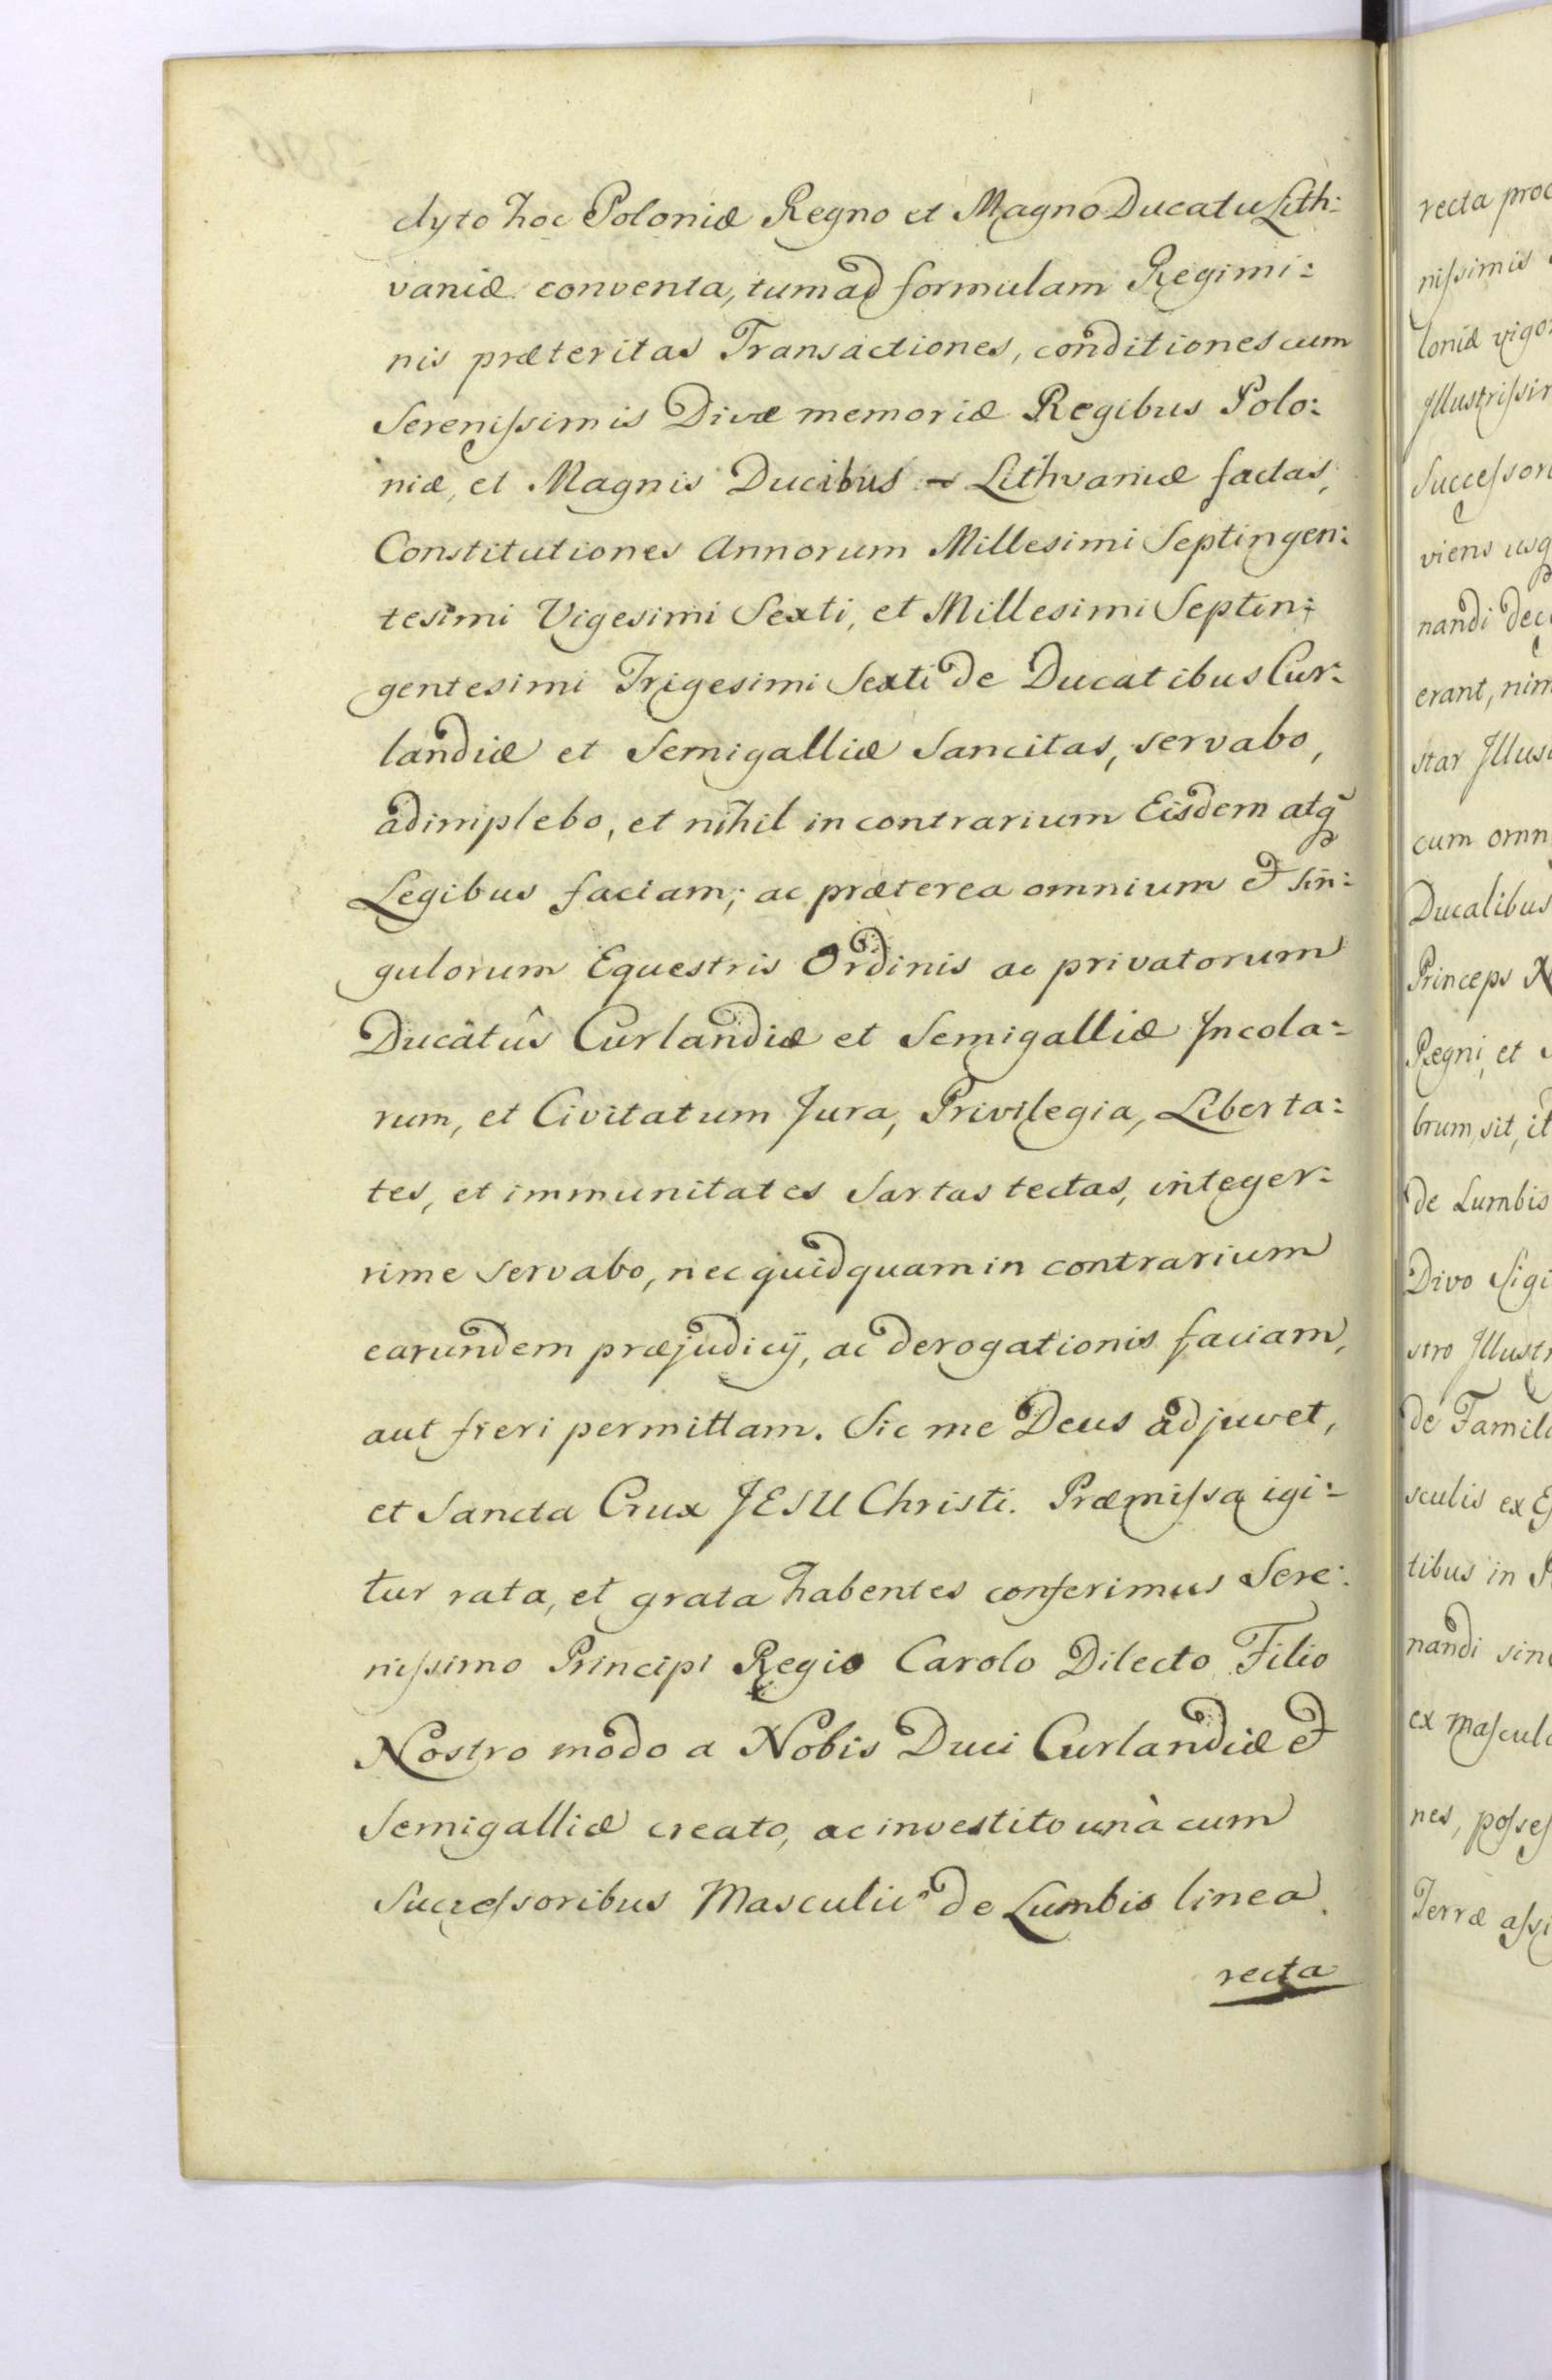 clyto hoc Poloniæ Regno et Magno Ducatu Lith:
vaniæ conventa, tum ad formulam Regimi:
nis præteritas Transactiones, conditiones cum
Sereniſsimis Divæ memoriæ Regibus Polo:
niæ, et Magnis Ducibus Lithvaniæ factas,
Constitutiones Annorum Millesimi Septingen:
tesimi Vigesimi Sexti, et Millesimi Septin:
gentesimi Trigesimi Sexti de Ducatibus Cur:
landiæ et Semigalliæ Sancitas, servabo,
adimplebo, et nihil in contrarium Eisdem atq̃
Legibus faciam; ac præterea omnium et sin:
gulorum Equestris Ordinis ac privatorum
Ducâtûs Curlandiæ et Semigalliæ Incola:
rum, et Civitatum Jura, Privilegia, Liberta:
tes, et immunitates Sartas tectas, integer:
rime servabo, nec quidquam in contrarium
earundem præjudicÿ, ac derogationis faciam,
aut fieri permittam. Sic me Deus adjuvet,
et Sancta Crux JESU Christi. Præmiſsa igi:
tur rata, et grata habentes conferimus Sere:
niſsimo Principi Regio Carolo Dilecto Filio
Nostro modo a Nobis Duci Curlandiæ et
Semigalliæ creato, ac investito unà cum
Succeſsoribus Masculis de Lumbis linea
recta
recta
niſsimis
loniæ
Succeſsori
viens
nandi
erant,
star
cum
Ducalibus
Princeps
Regni, et
brum, sit,
de Lumbis
Divo
stro
de
sculis ex
tibus in
nandi
ex
nes,
Terræ